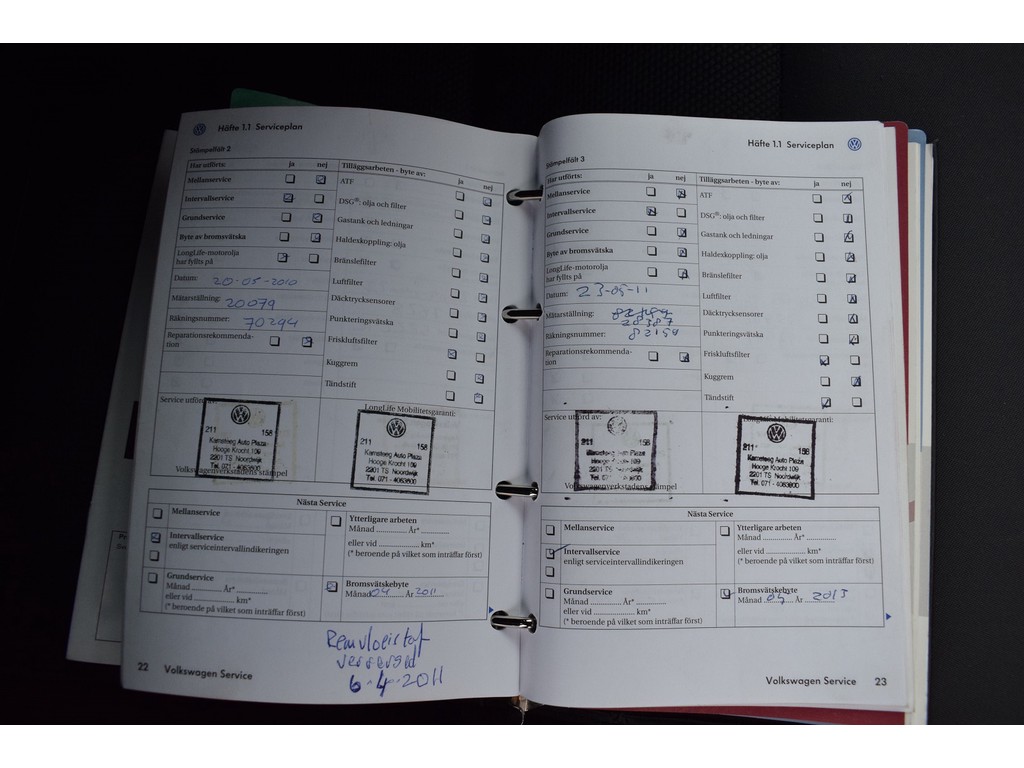 Häfte 1.1 Serviceplan
Stämpelfält 2
Har utförts: ja nej
Mellanservice
Intervallservice
Grundservice
Byte av bromsvätska
LongLife-motorolja
har fyllts på
Datum: 20-05-2010
Mätarställning: 20079
Räkningsnummer: 70294
Reparationsrekommenda-
tion
Tilläggsarbeten - byte av: ja nej
ATF
DSG®: olja och filter
Gastank och ledningar
Haldexkoppling: olja
Bränslefilter
Luftfilter
Däcktrycksensorer
Punkteringsvätska
Friskluftsfilter
Kuggrem
Tändstift
Service utförd av:
211 158
Kamsteeg Auto Plaza
Hooge Krocht 109
2201 TS Noordwijk
Tel. 071 - 4063600
Volkswagenverkstadens stämpel
LongLife Mobilitetsgaranti:
211 158
Kamsteeg Auto Plaza
Hooge Krocht 109
2201 TS Noordwijk
Tel. 071 - 4063600
Nästa Service
Mellanservice
Intervallservice
enligt serviceintervallindikeringen
Grundservice
Månad ............ År* ............
eller vid ............ km*
(* beroende på vilket som inträffar först)
Ytterligare arbeten
Månad ............ År* ............
eller vid ............ km*
(* beroende på vilket som inträffar först)
Bromsvätskebyte
Månad 04 År 2011
Remvloeistof
verversed
6-4-2011
22 Volkswagen Service
Häfte 1.1 Serviceplan
Stämpelfält 3
Har utförts: ja nej
Mellanservice
Intervallservice
Grundservice
Byte av bromsvätska
LongLife-motorolja
har fyllts på
Datum: 23-05-11
Mätarställning:
28387
Räkningsnummer: 82159
Reparationsrekommenda-
tion
Tilläggsarbeten - byte av: ja nej
ATF
DSG®: olja och filter
Gastank och ledningar
Haldexkoppling: olja
Bränslefilter
Luftfilter
Däcktrycksensorer
Punkteringsvätska
Friskluftsfilter
Kuggrem
Tändstift
Service utförd av:
211 158
Auto Plaza
Hooge Krocht 109
2201 TS Noordwijk
Tel. 071
Volkswagenverkstadens stämpel
LongLife Mobilitetsgaranti:
211 158
Kamsteeg Auto Plaza
Hooge Krocht 109
2201 TS Noordwijk
Tel. 071 - 4063600
Nästa Service
Mellanservice
Intervallservice
enligt serviceintervallindikeringen
Grundservice
Månad ............ År* ............
eller vid ............ km*
(* beroende på vilket som inträffar först)
Ytterligare arbeten
Månad ............ År* ............
eller vid ............ km*
(* beroende på vilket som inträffar först)
Bromsvätskebyte
Månad 04 År 2013
Volkswagen Service 23